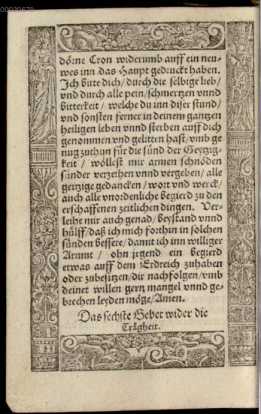 dörne Cron widerumb auff ein neu-
wes inn das Haupt gedruckt haben.
Ich bitte dich/ durch die selbige lieb/
vnd durch alle pein/ schmertzen vnnd
bitterkeit / welche du inn diser stund/
vnd sonsten ferner in deinem gantzen
heiligen leben vnnd sterben auff dich
genommen vnd gelitten hast/ vmb ge
nug zuthun für die sünd der Geytzig-
keit / wöllest mir armen schnöden
sünder verzeihen vnnd vergeben/ alle
geytzige gedancken / wort vnd werck/
auch alle vnordenliche begierd zu den
erschaffenen zeitlichen dingen. Ver-
leihe mir auch genad/ beystand vnnd
hülff/ daß ich mich forthin in solchen
sünden bessere/ damit ich inn williger
Armut / ohn jrgend ein begierd
etwas auff dem Erdtreich zuhaben
oder zubesitzen/ dir nachfolgen/ vmb
deinet willen gern mangel vnnd ge-
brechen leyden möge/ Amen.
Das sechste Gebet wider die
Trägheit.